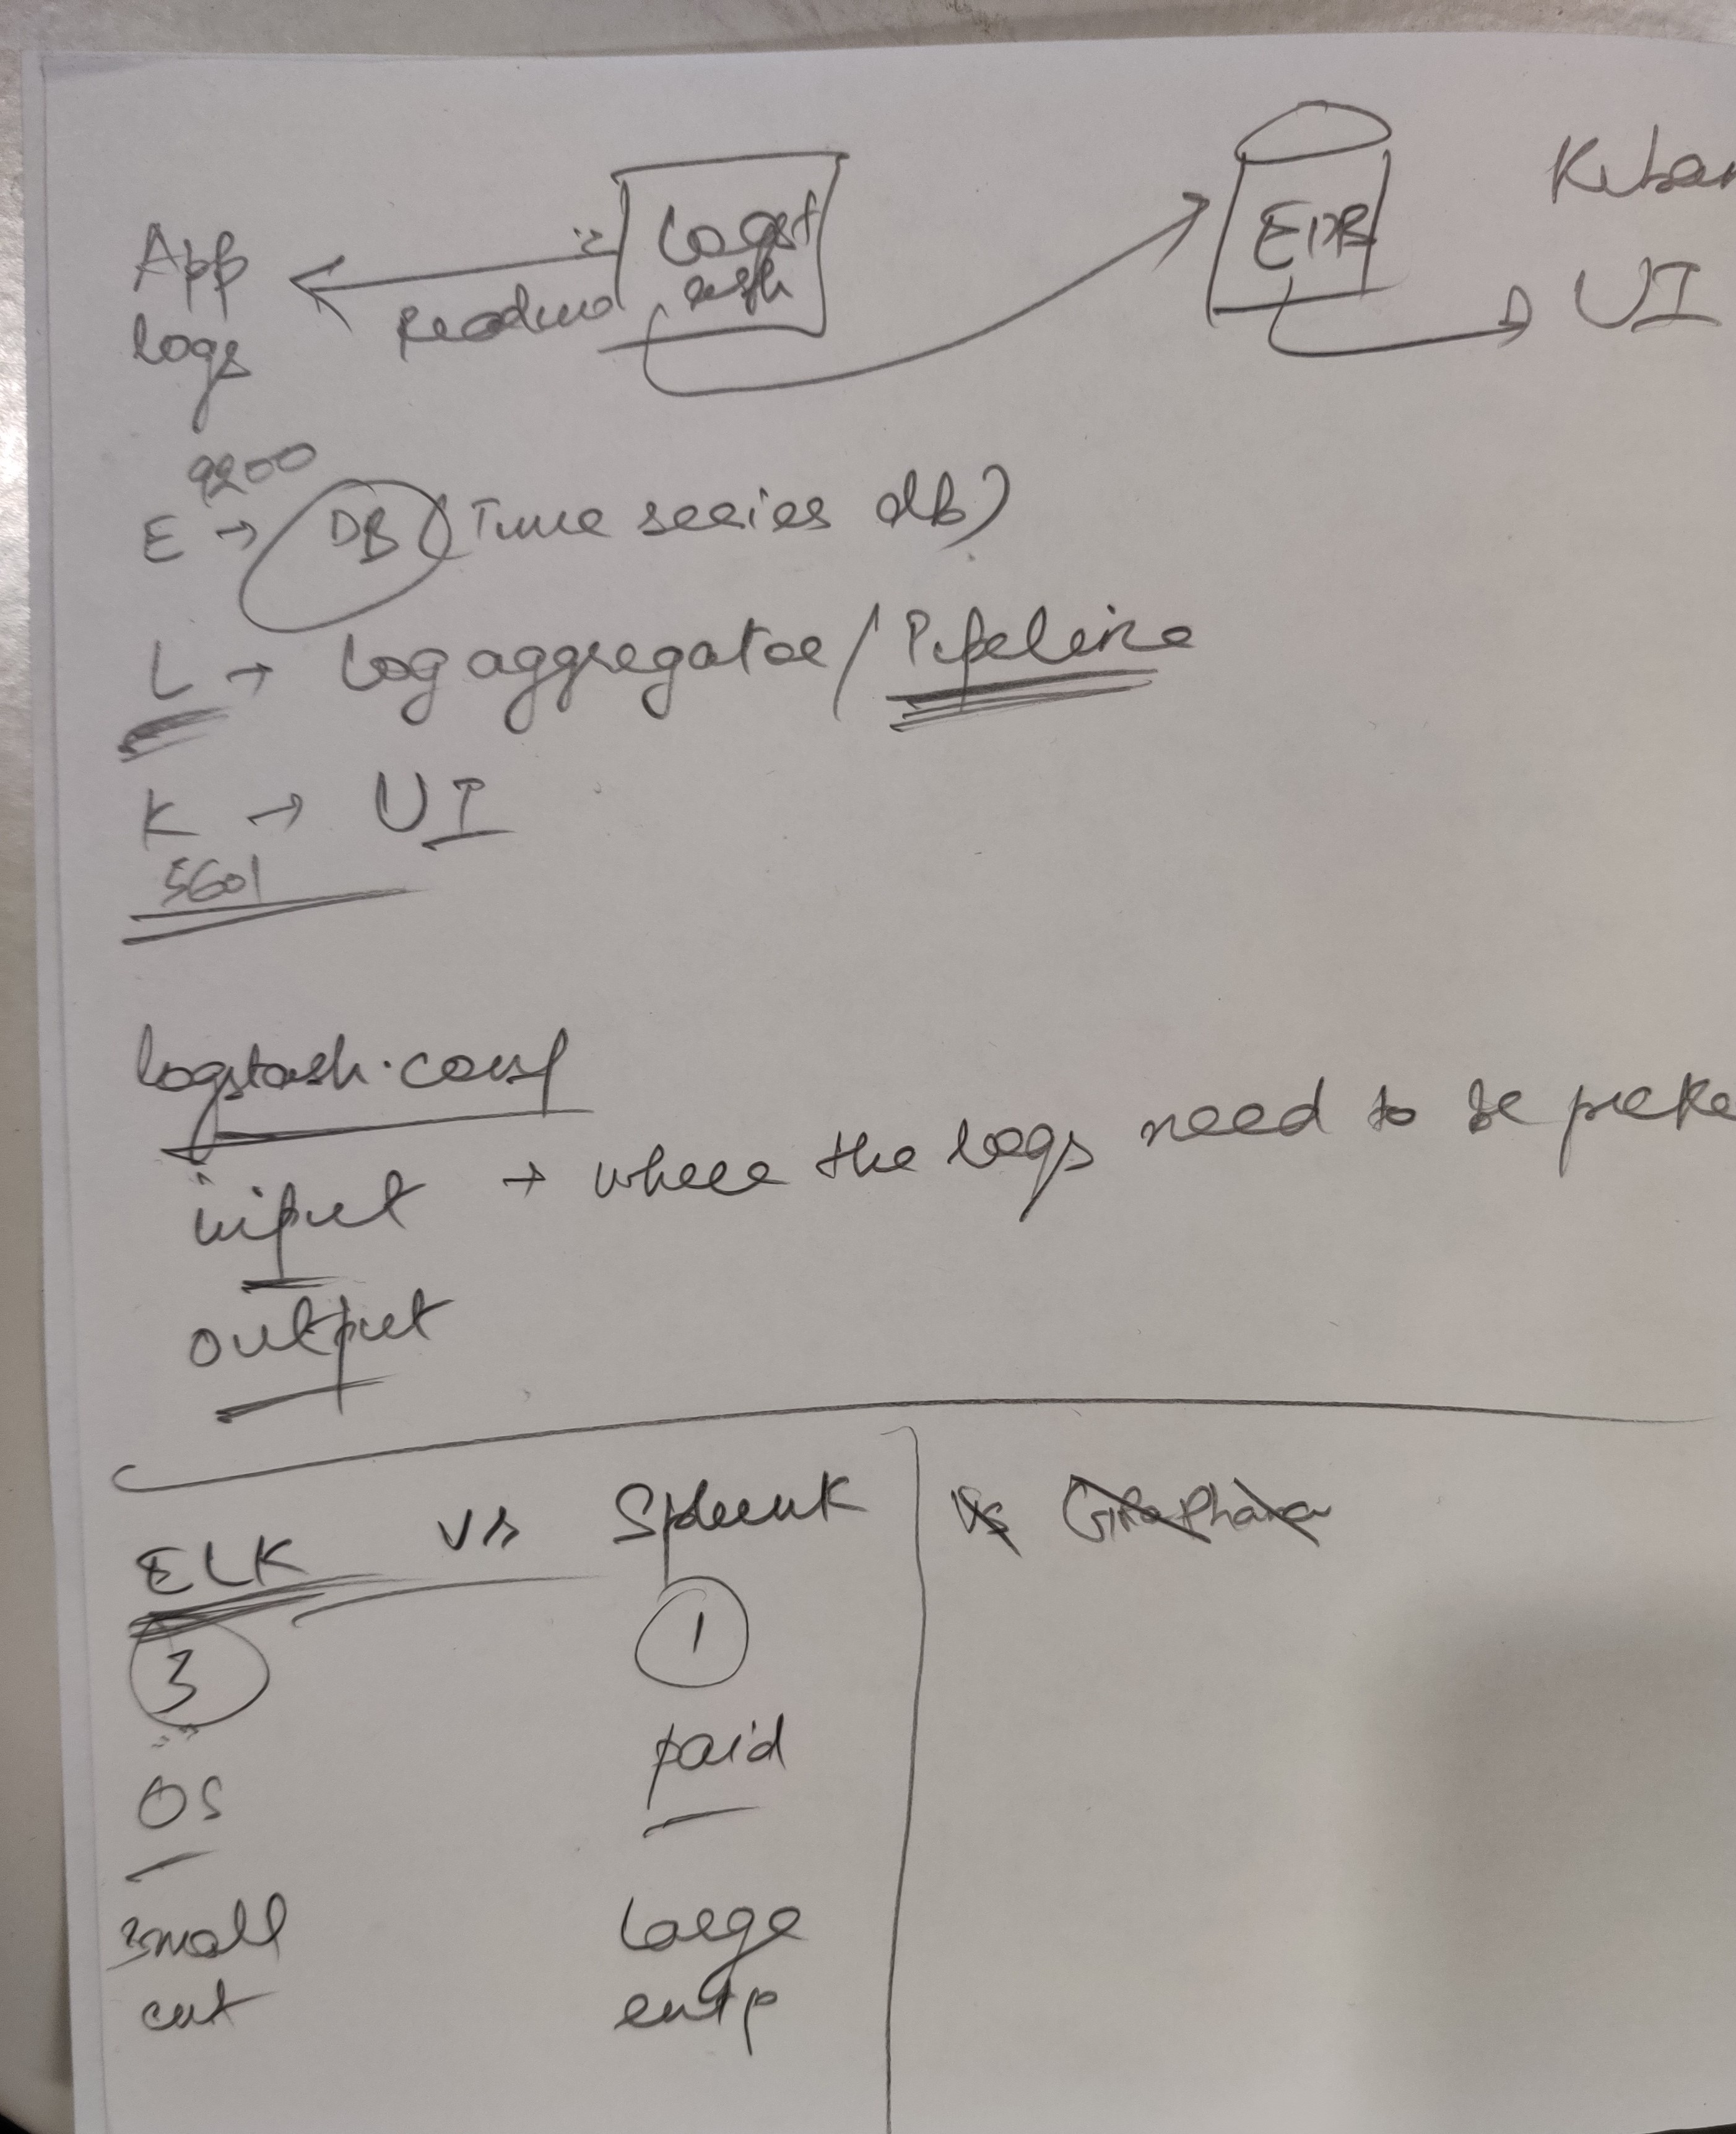 App
logs
Logst
ash
EDB
Kiban
UI
9200
E → DB (Time series db)
L → Log aggregator / Pipeline
K → UI
5601
logstash.conf
input → where the logs need to be picke
output
ELK vs Splunk
Vs Graphana
3
1
OS
paid
small
ent
Large
entp